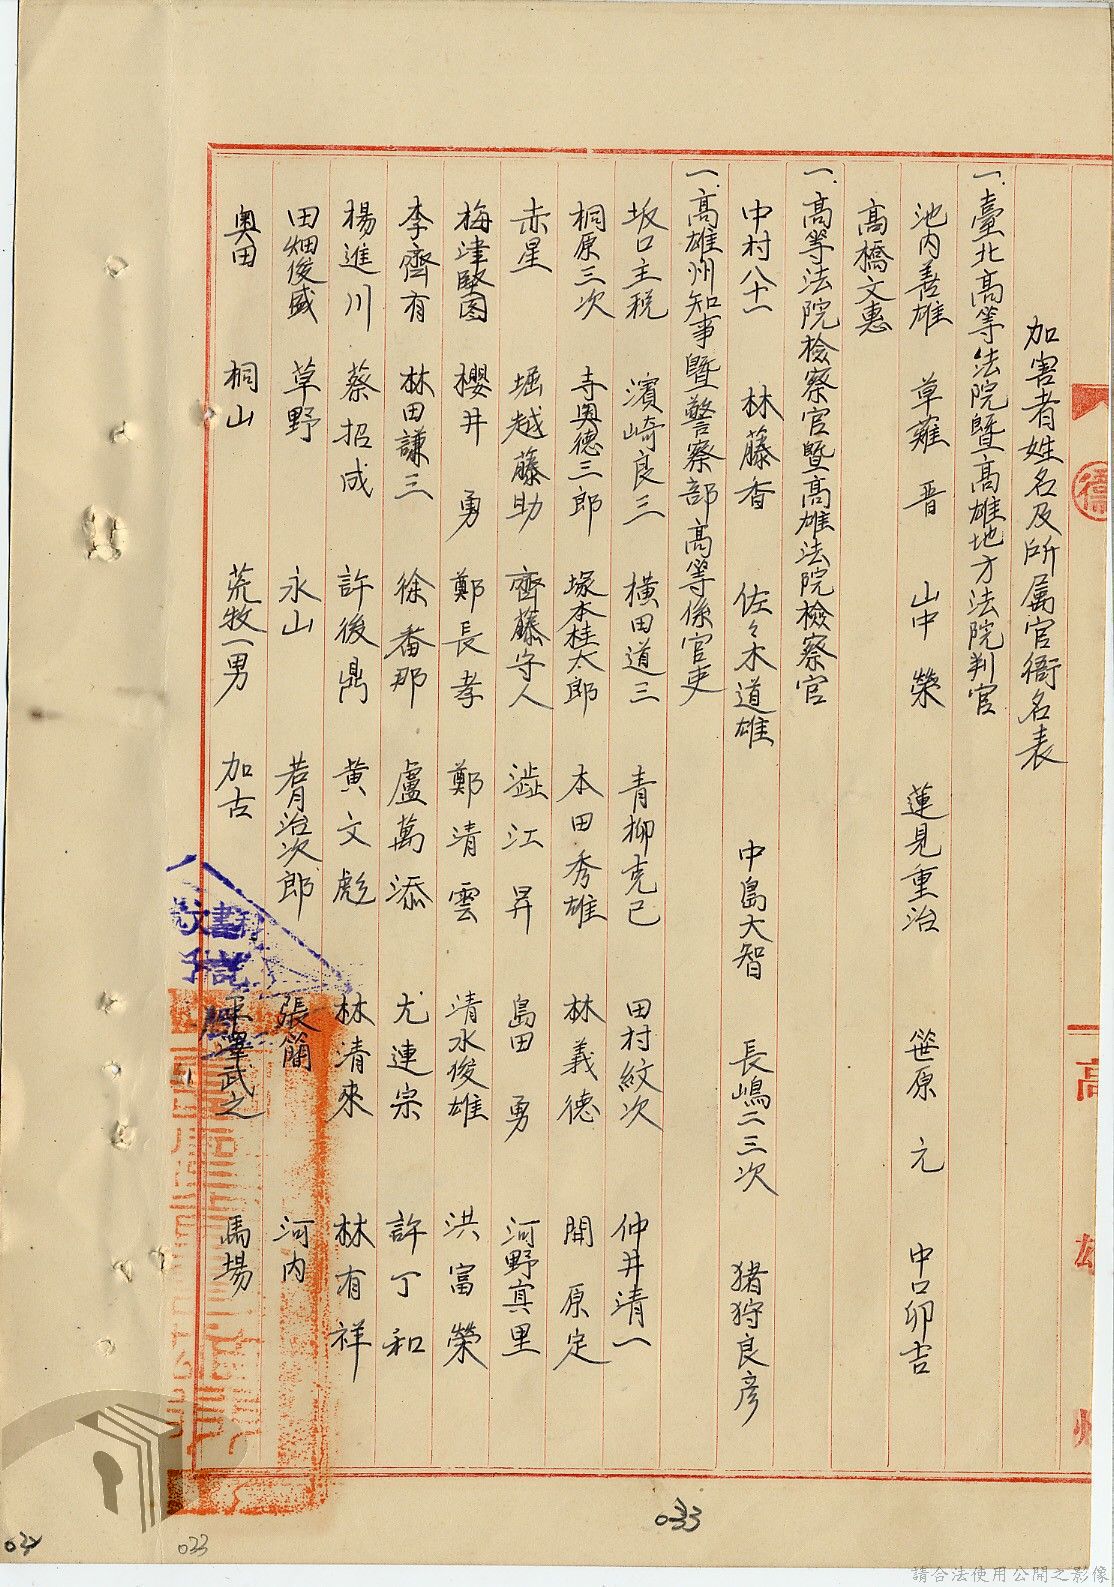 加害者姓名及所属官衙名表
一.臺北高等法院暨高雄地方法院判官
池内善雄 草薙晋 山中榮 蓮見重治 笹原元 中口卯吉
高橋文惠
一.高等法院檢察官暨高雄法院檢察官
中村八十一 林藤香 佐々木道雄 中島大智 長嶋二三次 猪狩良彦
一.高雄州知事暨警察部高等係官吏
坂口主税 濱崎良三 横田道三 青柳克己 田村紋次 仲井清一
桐原三次 寺奥德三郎 塚本桂太郎 本田秀雄 林義德 開原定
赤星 堀越藤助 齊藤守人 澁江昇 島田勇 河野寅里
梅津堅固 櫻井勇 鄭長孝 鄭清雲 清水俊雄 洪富榮
李齊有 林田謙三 徐番那 盧萬添 尤連宗 許丁和
楊進川 蔡招成 許後鼎 黄文彪 林清來 林有祥
田畑俊盛 草野 永山 治次郎 張簡 河内
奥田 桐山 荒牧一男 加古 澤武之 馬場
高雄州
033
033
請合法使用公開之影像